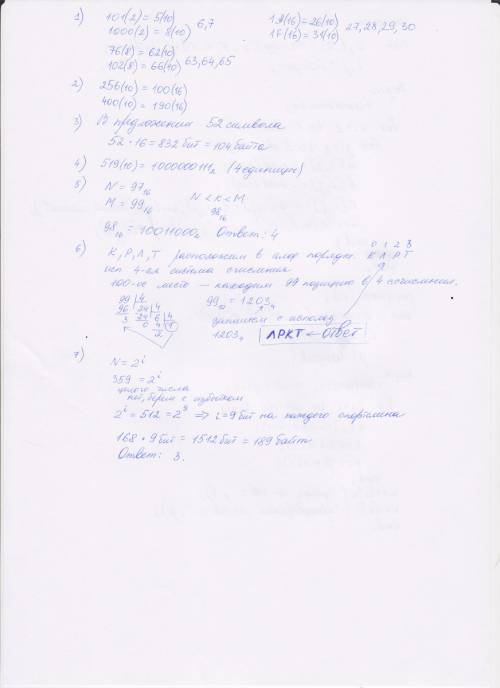 1) 101(2) = 5(10)
1000(2) = 8(10) 6,7
1A(16) = 26(10)
1F(16) = 31(10) 27,28,29,30
76(8) = 62(10)
102(8) = 66(10) 63,64,65
2) 256(10) = 100(16)
400(10) = 190(16)
3) В предложении 52 символа
52 · 16 = 832 бит = 104 байта
4) 519(10) = 1000000111₂ (4 единицы)
5) N = 97₁₆
M = 99₁₆ N < K < M
98₁₆
98₁₆ = 10011000₂ Ответ: 4
6) К, Р, Л, Т расположим в алф порядке.
0 1 2 3
К Л Р Т
исп 4-ая система счисления
100-ое место — находим 99 позицию в 4 с счисления.
99 4
96 24 4
3 24 6 4
0 4 1
2
99₁₀ = 1203₄
запишем с использ
1203₄ ЛРКТ ← ОТВЕТ
7) N = 2ⁱ
359 = 2ⁱ
целого числа
нет, берем с избытком
2ⁱ = 512 = 2⁹ ⇒ i = 9 бит на каждого спортсмена
168 · 9 бит = 1512 бит = 189 байт
Ответ: 3.